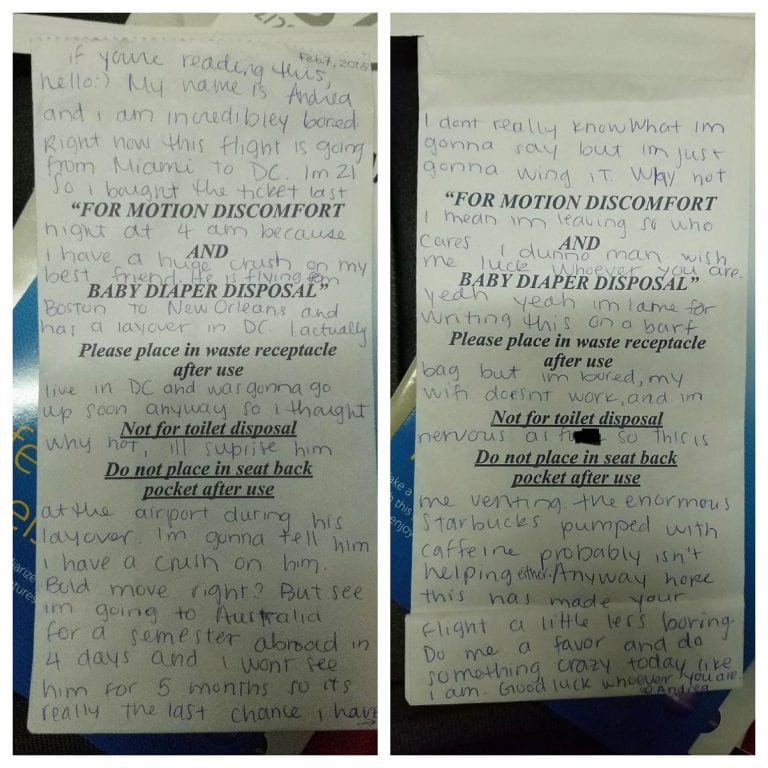 Feb 7, 2015
if youre reading this,
hello:) My name is Andrea
and i am incredibley bored.
Right now this flight is going
from Miami to DC. Im 21
so i baught the ticket last
"FOR MOTION DISCOMFORT
night at 4 am because
AND
i have a huge crush on my
best friend. He is flying from
BABY DIAPER DISPOSAL"
Boston to New Orleans and
has a layover in DC. I actually
Please place in waste receptacle
after use
live in DC and was gonna go
up soon anyway so i thought
Not for toilet disposal
why not, ill suprise him
Do not place in seat back
pocket after use
at the airport during his
layover. Im gonna tell him
i have a crush on him.
Bold move right? But see
im going to Australia
for a semester abroad in
4 days and i wont see
him for 5 months so its
really the last chance i have
→
I dont really know what im
gonna say but im just
gonna wing it. Why not
"FOR MOTION DISCOMFORT
I mean im leaving so who
AND
cares I dunno man wish
me luck whoever you are.
BABY DIAPER DISPOSAL"
yeah yeah im lame for
writing this on a barf
Please place in waste receptacle
after use
bag but im bored, my
wifi doesnt work, and im
Not for toilet disposal
nervous as so this is
Do not place in seat back
pocket after use
me venting. the enormous
Starbucks pumped with
caffeine probably isn't
helping either. Anyway hope
this has made your
flight a little less boring.
Do me a favor and do
something crazy today like
i am. Good luck whoever you are.
Andrea